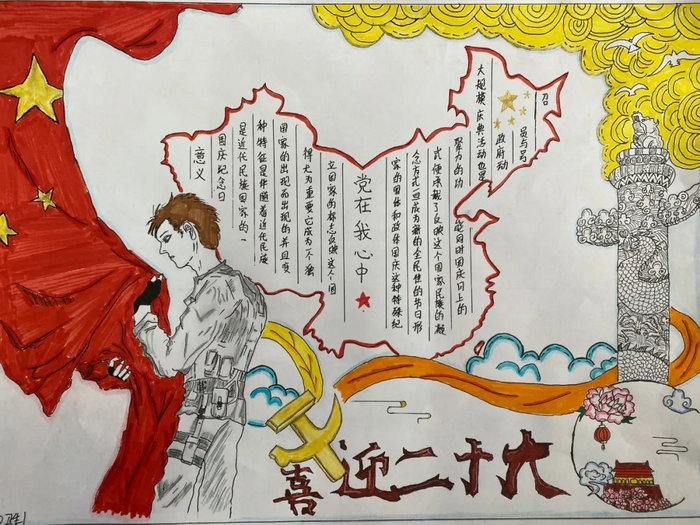 意义
国庆纪念日
是近代民族国家的一
种特征是伴随着近代民族
国家的出现而出现的并且变
得尤为重要它成为一个独
立国家的标志反映这个国
党在我心中
家的国体和政体国庆这种特殊纪
念方式一旦成为新的全民性的节日形
式便承载了反映这个国家民族的凝
聚力的功
能同时国庆日上的
大规模庆典活动也是
政府动
员与号
召
喜迎二十大